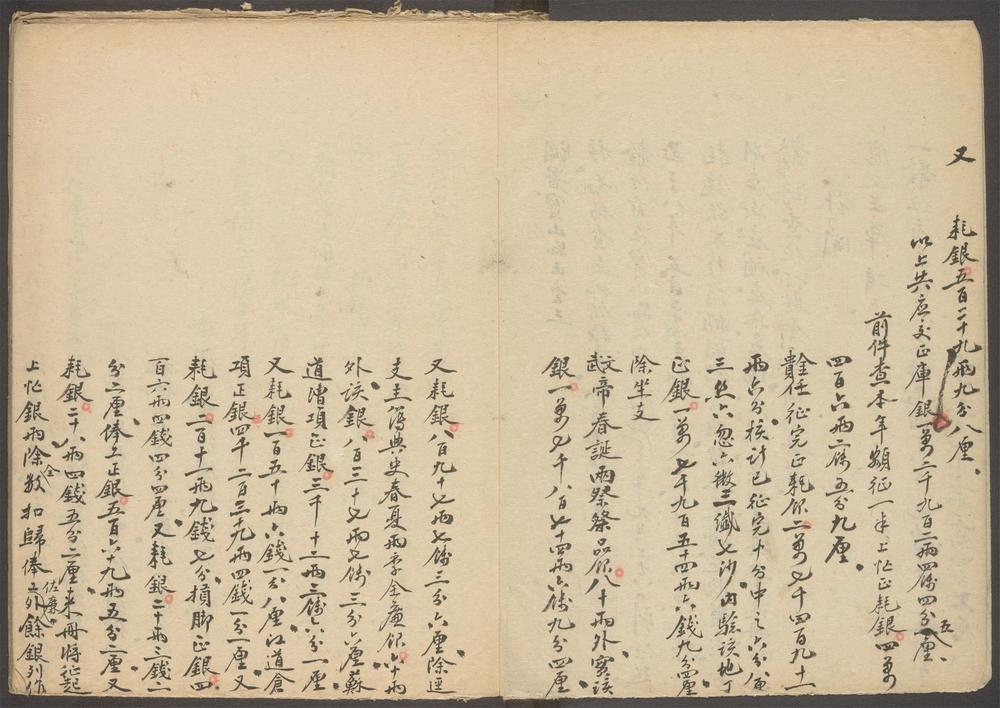 又 耗銀五百二十九兩九分八厘
以上共應交正庫銀一萬二千九百二兩四錢四分五厘
前件查本年額征一半上忙正耗銀四萬
四百六兩二錢五分九厘
任征完正耗銀二萬七千四百九十一
兩六分核計已征完十分中之六分
三絲六忽六微三纖七沙內驗該地丁
正銀一萬七千九百五十四兩六錢九分四厘
除坐支
文武帝春誕兩祭祭品銀八十兩外實該
銀一萬七千八百七十四兩六錢九分四厘
又耗銀八百九十七兩七錢三分六厘除逕
支主簿典史春夏兩季全廉銀六十兩
外該銀八百三十七兩七錢三分六厘蘇
道漕項正銀三千十二兩三錢六分一厘
又耗銀一百五十兩六錢一分八厘江道倉
項正銀四千二百三十九兩四錢一分一厘又
耗銀二百十一兩九錢七分損腳正銀四
百六兩四錢四分四厘又耗銀二十兩三錢二
分二厘俸工正銀五百六十九兩五分二厘又
耗銀二十八兩四錢五分二厘來冊將征起
上忙銀兩除全數扣歸俸工佐廉外餘銀列作